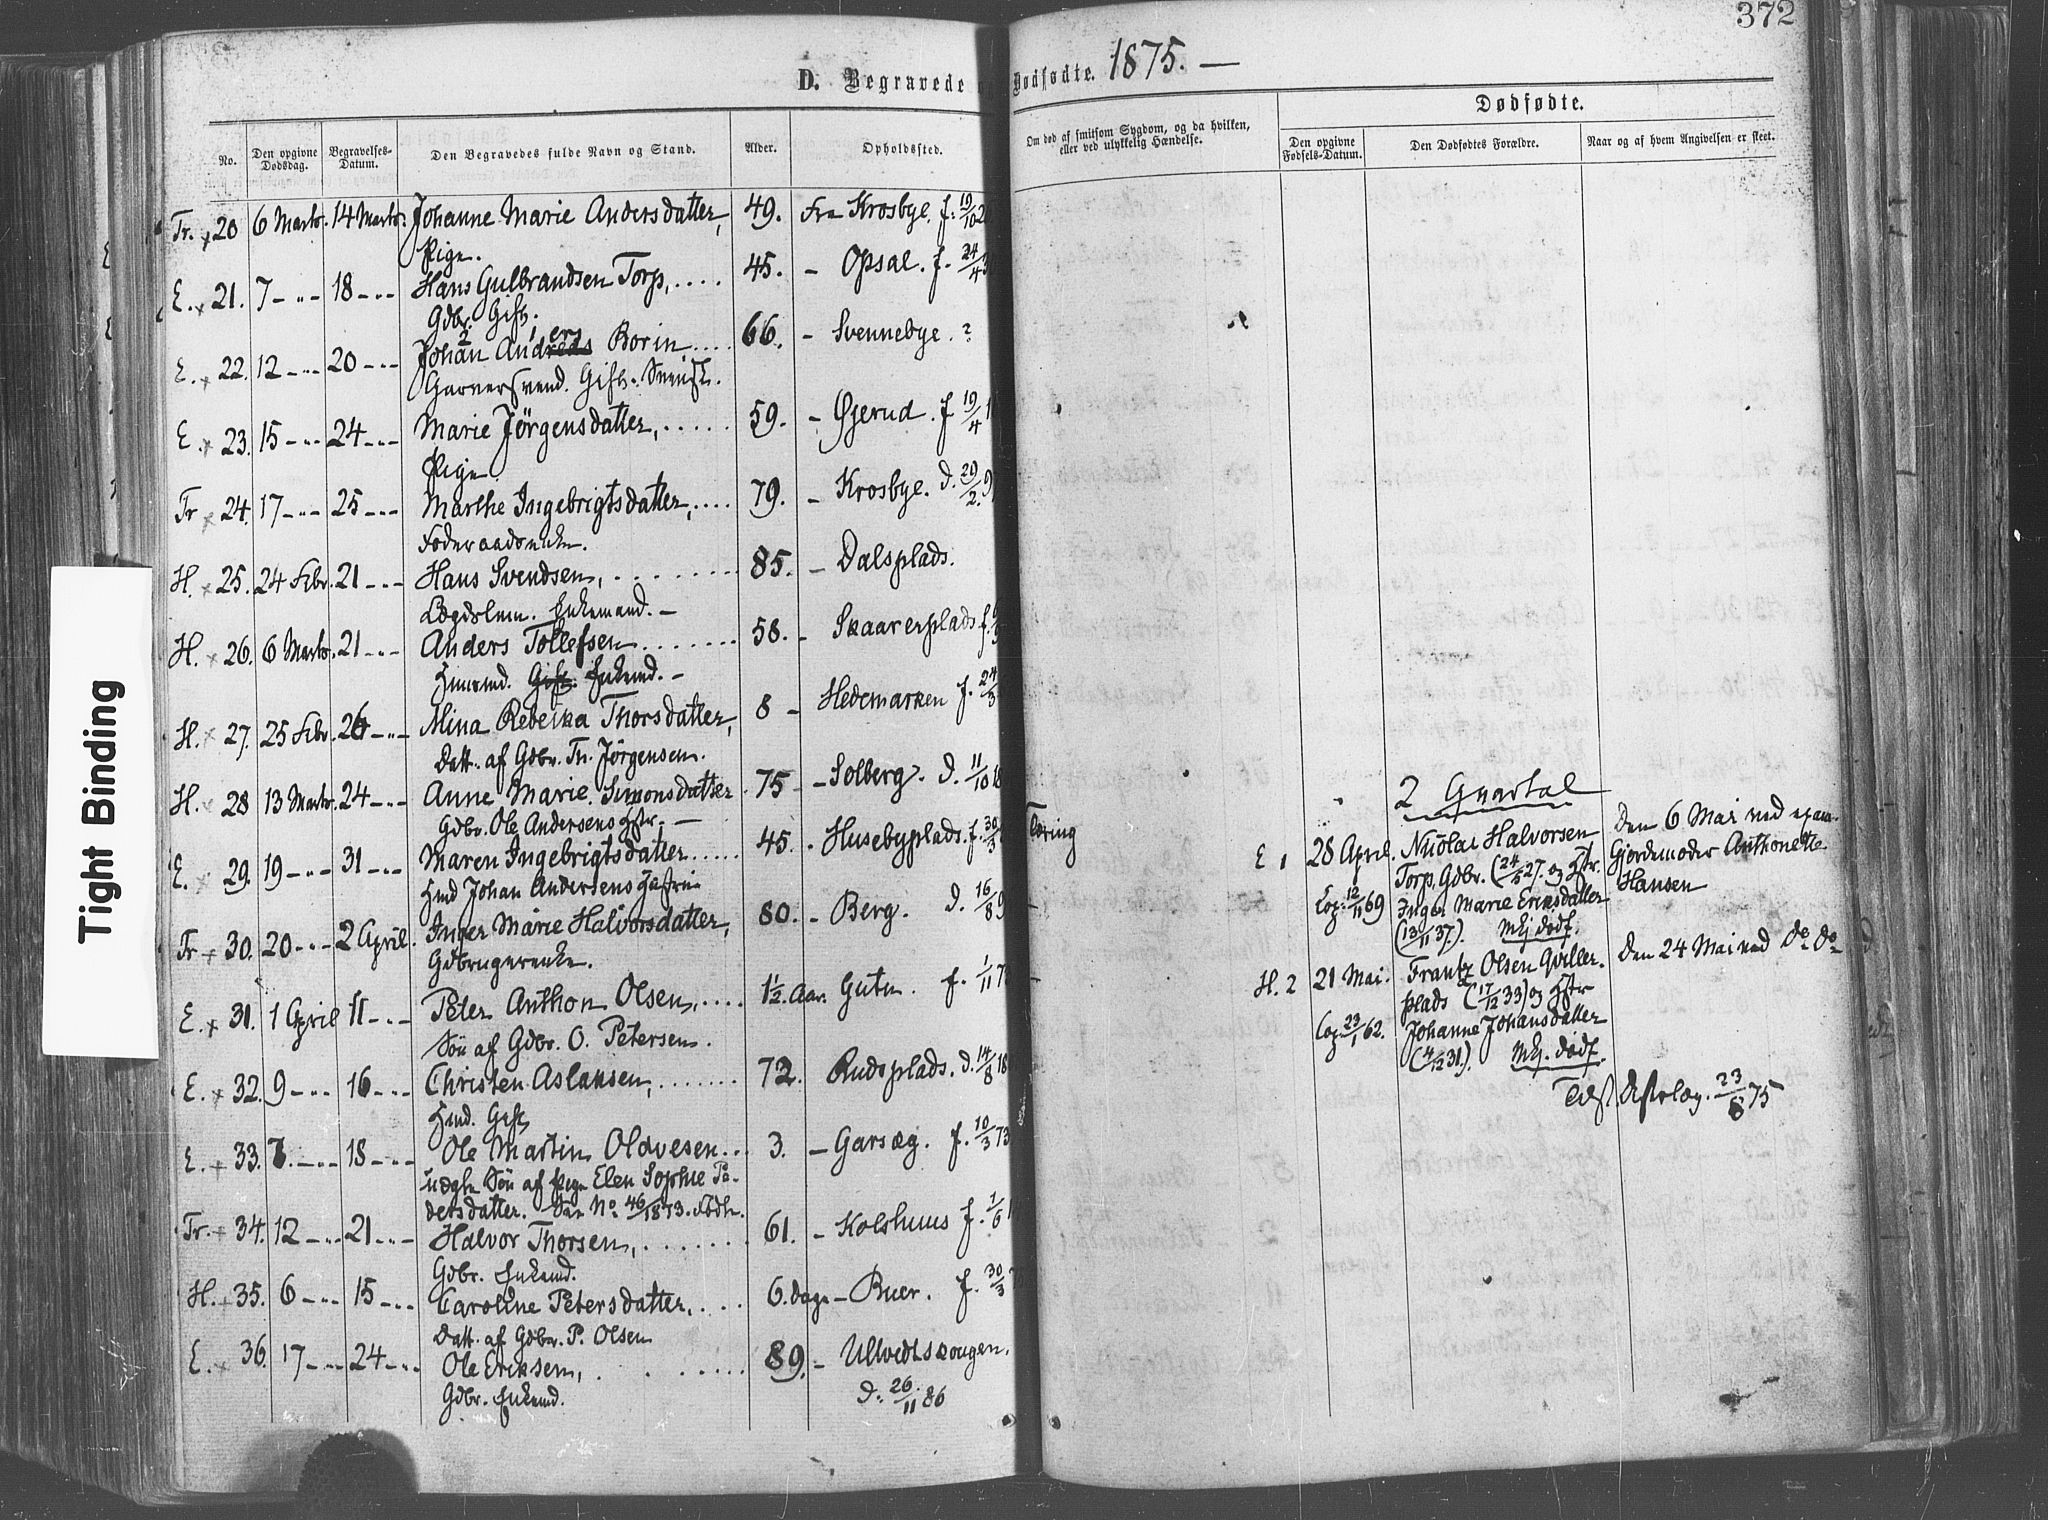 372
D. Begravede o
Dødfødte. 1875. —
No.
Den opgivne Dødsdag.
Begravelses-Datum.
Den Begravedes fulde Navn og Stand.
Alder.
Opholdssted.
Om død af smitsom Sygdom, og da hvilken,
eller ved ulykkelig Hændelse.
Dødfødte.
Den opgivne Fødsels-Datum.
Den Dødfødtes Forældre.
Naar og af hvem Angivelsen er skeet.
Tr. × 20 6 Marts. 14 Marts. Johanne Marie Andersdatter, 49. Fra Krosbye. f. 19/10 2
Pige.
E. × 21. 7 - „ - 18 - „ - Hans Gulbrandsen Torp, .... 45. - Opsal. f. 24/4 3
Gdbr. Gift.
E. × 22. 12 - „ - 20 - „ - Johan Anders Borin, .... 66. - Svennebye. ?
Garversvend. Gift. Svensk.
E. × 23. 15 - „ - 24 - „ - Marie Jörgensdatter, ..... 59. - Gjerud. f 19/4 1
Pige
Tr × 24. 17 - „ - 25 - „ - Marthe Ingebrigtsdatter, .... 79. - Krosbye. d. 29/2. 9
Föderaadsenke.
H. × 25. 24 Febr. 21 - „ - Hans Svendsen, ........ 85. - Dalsplads.
Lægdslem. Enkemand. -
H. × 26. 6 Marts. 21 - „ - Anders Tollefsen ....... 58. - Skaarerplads f.
Hmand. Gift. Enkemd. -
H. × 27. 25 Febr. 26 - „ - Mina Rebekka Thorsdatter, 8 - Hedemarken f. 24/3
Datt. af Gdbr. Th. Jörgensen.
H. × 28 13 Marts. 24 - „ - Anne Marie Simonsdatter 75 - Solberg. d. 11/10 18
Gdbr. Ole Andersens Hstr. -
E. × 29. 19 - „ - 31 - „ - Maren Ingebrigtsdatter ..... 45. - Husebyplads. f. 30/3 Tæring
Hmd Johan Andersens Hustru
Tr + 30. 20 - „ - 2 April. Inger Marie Halvorsdatter, 80. - Berg. d. 16/8 9
Gdbrugerenke.
E. × 31. 1 April 11 - „ - Peter Anthon Olsen, .... 1½ Aar. Guten. f. 1/11 7
Sön af Gdbr. O. Petersen.
E. × 32. 9 - „ - 16 - „ - Christen Aslaksen, ....... 72. Rudsplads. d. 14/8 18
Hmd. Gift
E. + 33. 7. - „ - 18 - „ - Ole Martin Oldvesen ... 3. - Garsæg. f. 10/3 73
uægte Sön af Pige Elen Sophie Pe-
dersdatter. Se No 46/1873. Födte.
Tr. + 34. 12 - „ - 21 - „ - Halvor Thorsen, ....... 61. - Kolshuus f. 1/6 1
Gdbr. Enkemd.
H. + 35. 6 - „ - 15 - „ - Caroline Petersdatter, .... 6. dage - Buer. f. 30/3
Datt. af Gdbr. P. Olsen
E. × 36. 17 - „ - 24 - „ - Ole Eriksen, ....... 89. - Ullvedtskougen.
Gdbr. Enkemd. d. 26/11 86
2 Qvartal
E 1 28 April. Nicolai Halvorsen
Torp, Gdbr. (24/5 27. og Hstr.
Cop. 12/11 69 Inger Marie Eriksdatter
(13/11 37.). Mkj. dödf.
Den 6 Mai ved exam.
Gjordemoder Anthonette
Hansen
H. 2 21 Mai. Frantz Olsen Qviller-
plads (17/12 33) og Hstr
Cop. 23/1 62. Johanne Johansdatter
(4/12 31). Mkj. dödf.
Den 24 Mai ved do do
23/8 75
Tight Binding